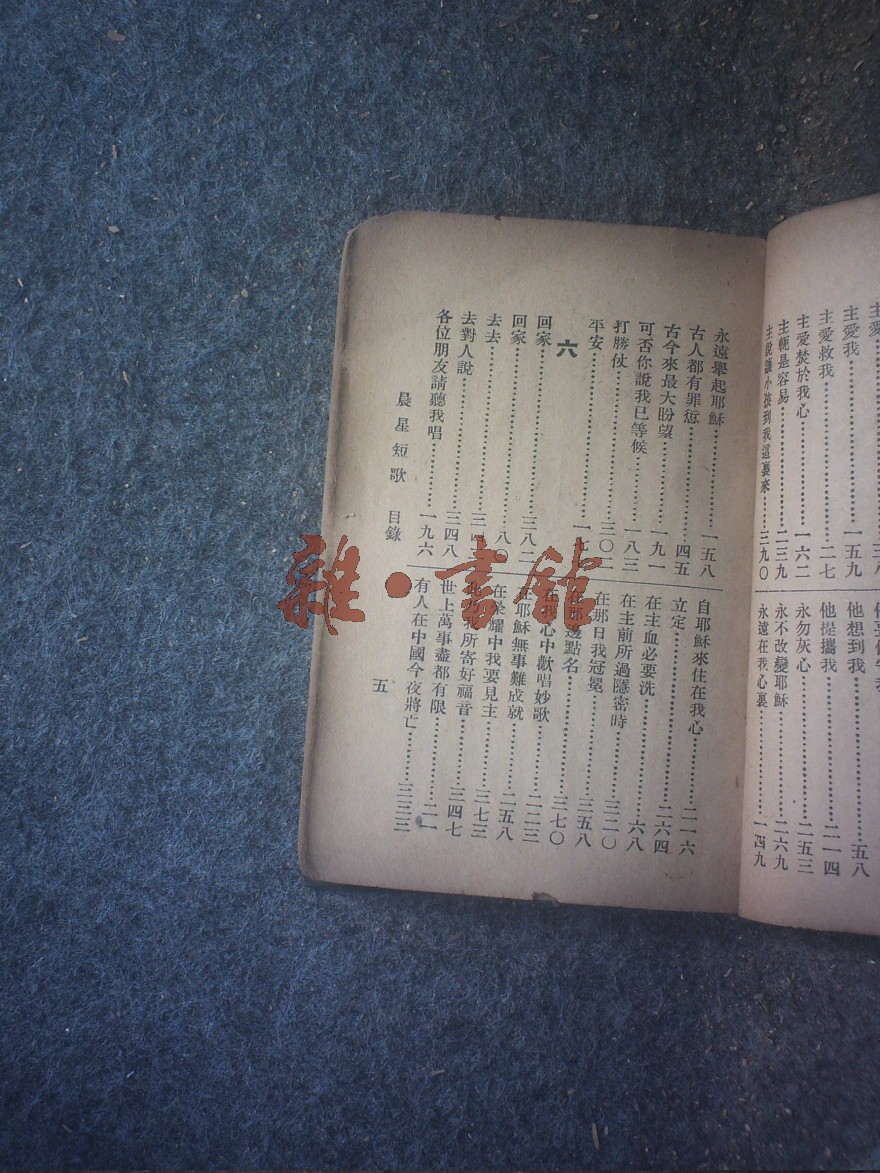 主愛我……一五九
主愛救我……二七
主愛焚於我心……一六二
主軛是容易……二三九
主說讓小孩到我這裏來……三九〇
他想到我……五八
他提攜我……二一四
永勿灰心……一五三
永不改變耶穌……二六九
永遠在我心裏……一四九
永遠舉起耶穌……一五八
古人都有罪愆……四五
古今來最大盼望……一九一
可否你說我已等候……一八三
打勝仗……三〇二
平安……一九
六
回家……三八二
回家……八〇
去去……三四
去對人說……三四八
各位朋友請聽我唱……一九六
自耶穌來住在我心……二一六
立定……二六四
在主血必要洗……六八
在主前所過隱密時……三二〇
在那日我冠冕……三五八
在那邊點名……三七〇
在我心中歡唱妙歌……二二三
在耶穌無事難成就……二五八
在榮耀中我要見主……三七三
我所寄好福音……三四七
世上萬事盡都有限……二一
有人在中國今夜將亡……三三三
晨星短歌 目錄 五
雜·書館